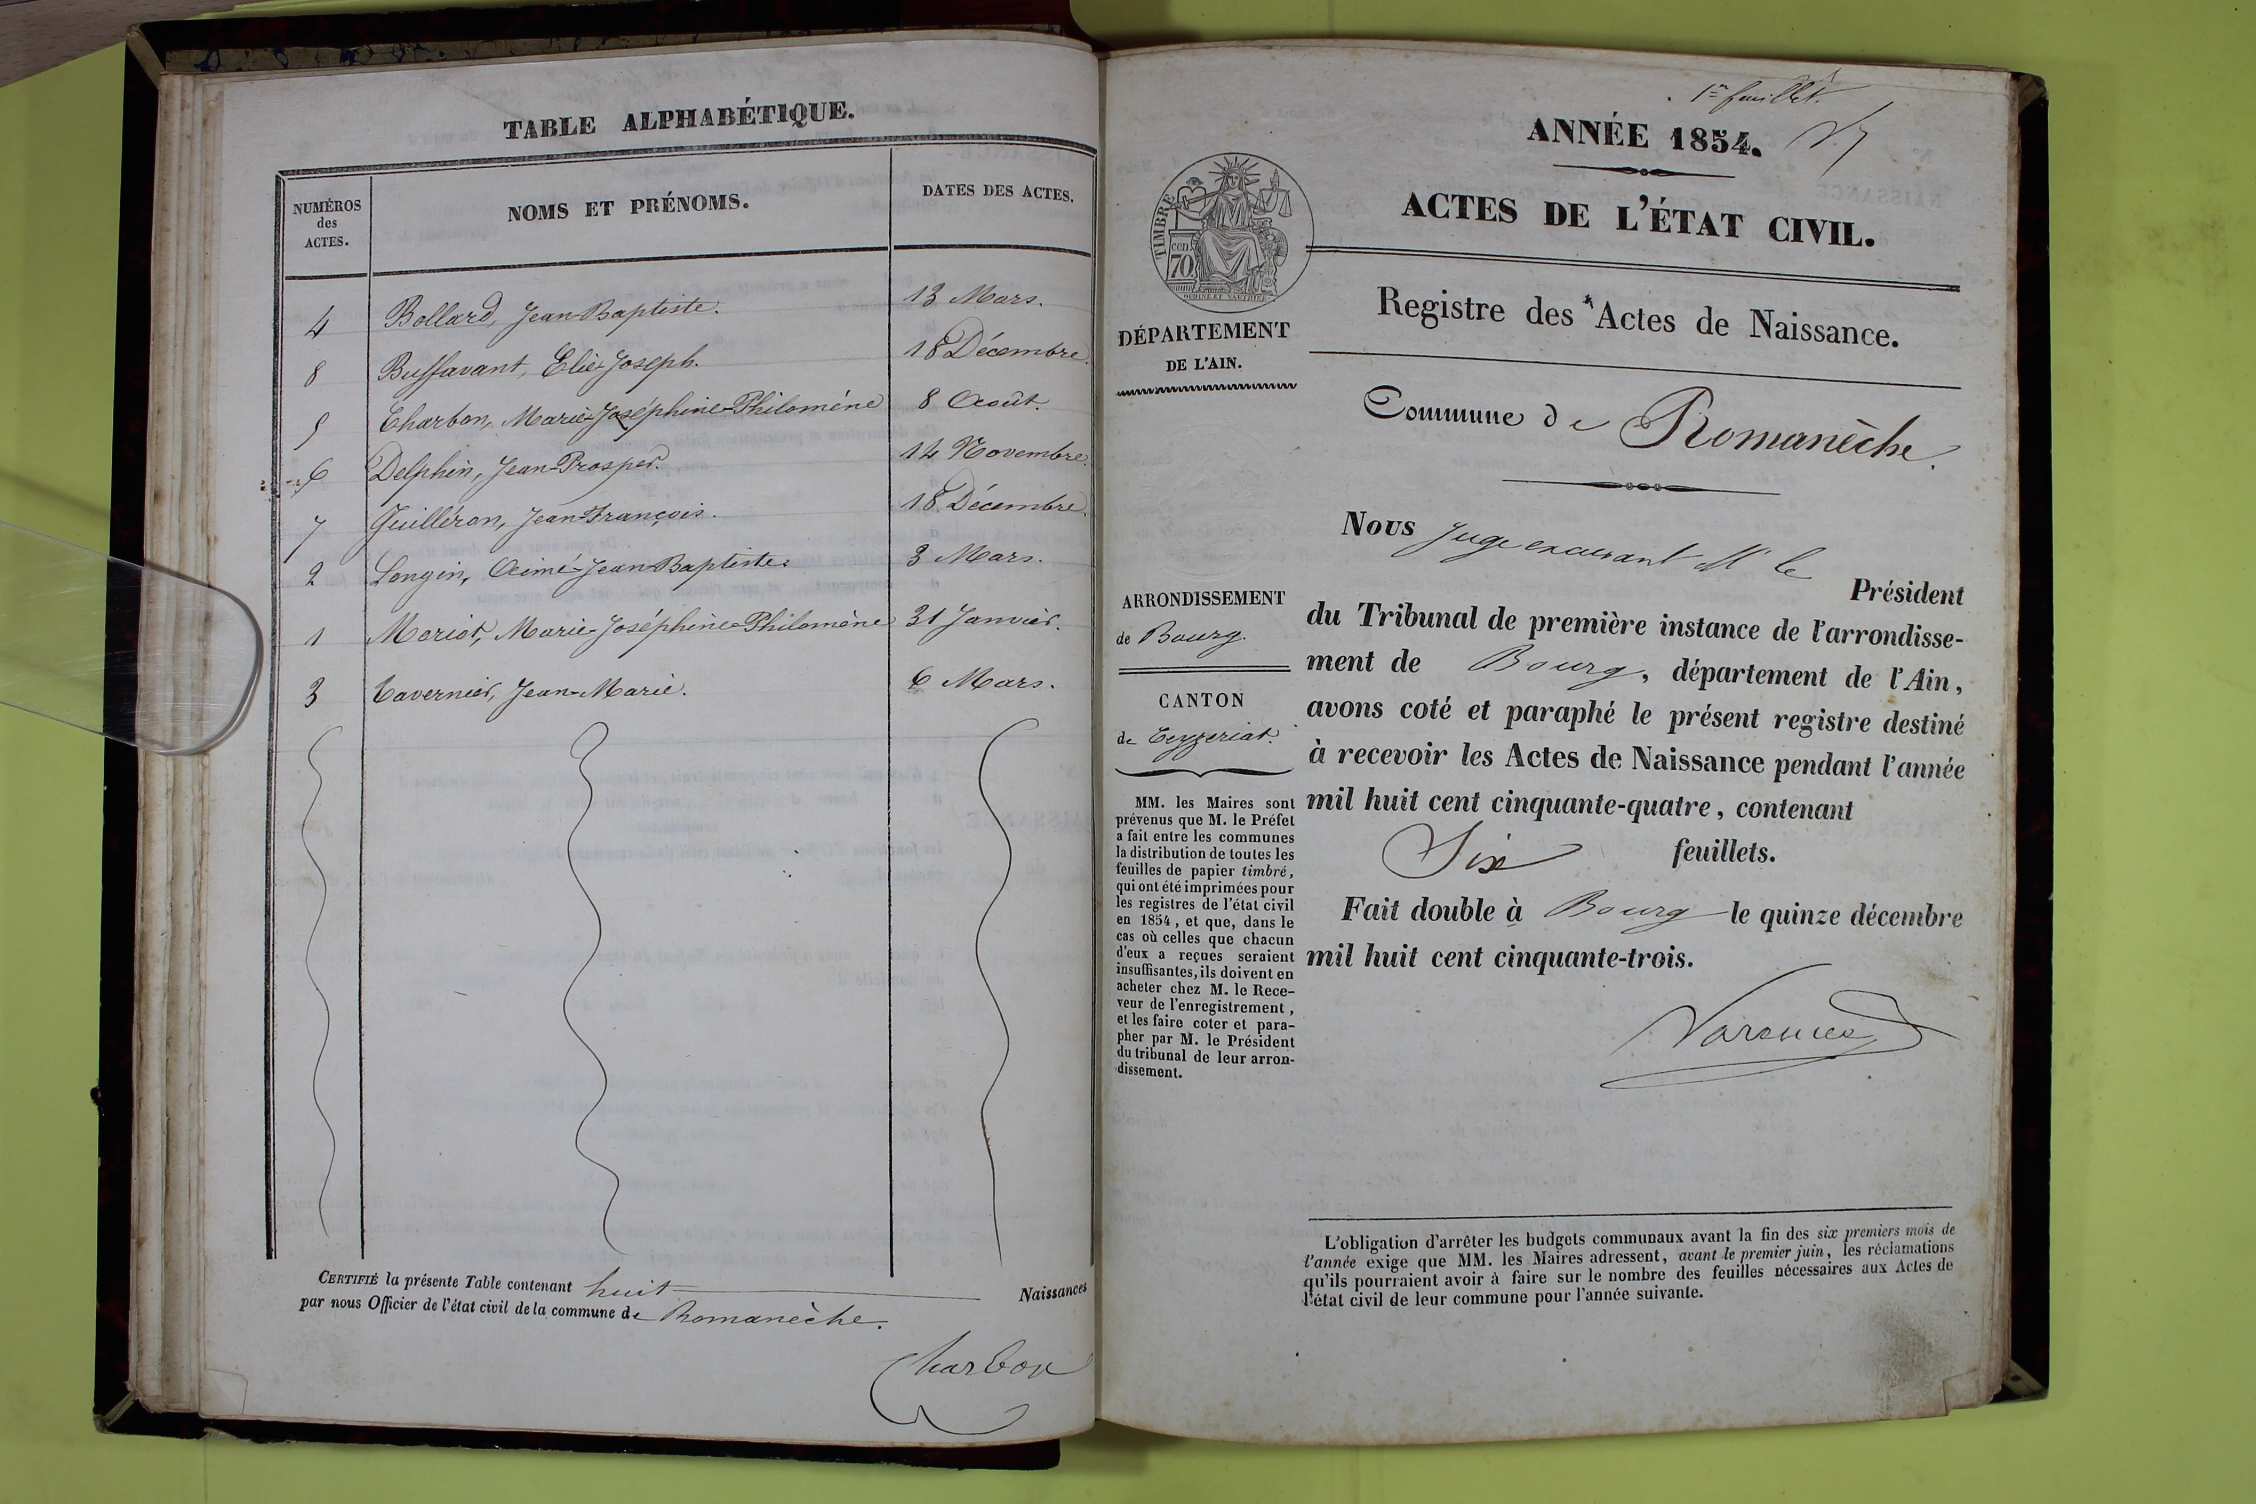 TABLE ALPHABÉTIQUE.
NUMÉROS des ACTES. NOMS ET PRÉNOMS. DATES DES ACTES.
4 Bollard, Jean-Baptiste. 13 Mars.
8 Buffavant, Elie-Joseph. 18 Décembre.
5 Charbon, Marie-Joséphine-Philomène 8 Août.
6 Delphin, Jean-Prosper. 14 Novembre.
7 Guilléron, Jean-François. 18 Décembre.
2 Longin, Aimé-Jean-Baptiste. 3 Mars.
1 Moriot, Marie-Joséphine-Philomène 31 Janvier.
3 Tavernier, Jean-Marie. 6 Mars.
CERTIFIÉ la présente Table contenant huit Naissances
par nous Officier de l'état civil de la commune de Romanèche.
Charbon
1er feuillet.
ANNÉE 1854.
ACTES DE L'ÉTAT CIVIL.
TIMBRE
70 cen
Registre des Actes de Naissance.
DÉPARTEMENT
DE L'AIN.
Commune de Romanèche.
ARRONDISSEMENT
de Bourg.
CANTON
de Ceyzeriat.
MM. les Maires sont
prévenus que M. le Préfet
a fait entre les communes
la distribution de toutes les
feuilles de papier timbré,
qui ont été imprimées pour
les registres de l'état civil
en 1854, et que, dans le
cas où celles que chacun
d'eux a reçues seraient
insuffisantes, ils doivent en
acheter chez M. le Rece-
veur de l'enregistrement,
et les faire coter et para-
pher par M. le Président
du tribunal de leur arron-
dissement.
Nous Juge excusant Mr le
Président
du Tribunal de première instance de l'arrondisse-
ment de Bourg, département de l'Ain,
avons coté et paraphé le présent registre destiné
à recevoir les Actes de Naissance pendant l'année
mil huit cent cinquante-quatre, contenant
Six feuillets.
Fait double à Bourg le quinze décembre
mil huit cent cinquante-trois.
L'obligation d'arrêter les budgets communaux avant la fin des six premiers mois de
l'année exige que MM. les Maires adressent, avant le premier juin, les réclamations
qu'ils pourraient avoir à faire sur le nombre des feuilles nécessaires aux Actes de
l'état civil de leur commune pour l'année suivante.